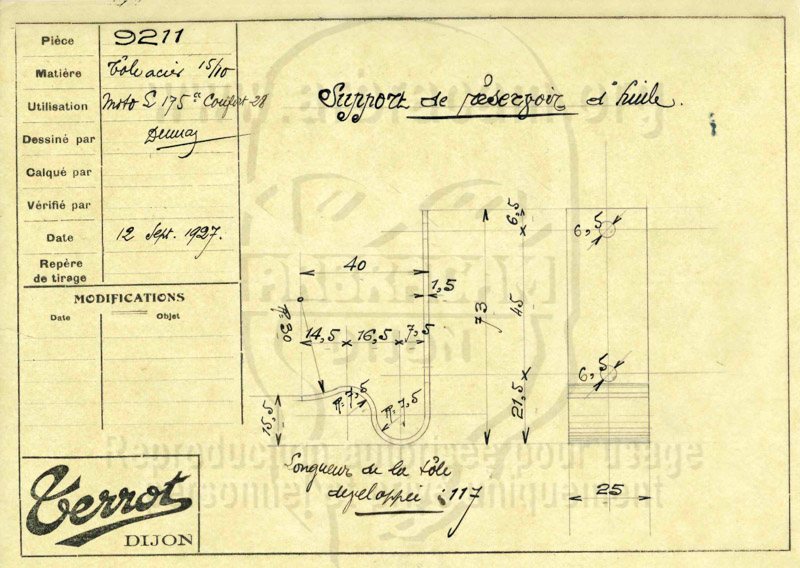 Pièce 9211
Matière Tôle acier 15/10
Utilisation Moto L 175cc Confort 28
Dessiné par
Calqué par
Vérifié par
Date 12 Sept. 1927.
Repère
de tirage
MODIFICATIONS
Date Objet
Support de réservoir d'huile.
40
1,5
R=30
14,5 16,5 7,5
15,5
R=7,5
R=7,5
73
6,5
45
21,5
6,5
6,5
25
Longueur de la tôle
développée : 117
Terrot
DIJON
Reproduction autorisée pour usage
uniquement